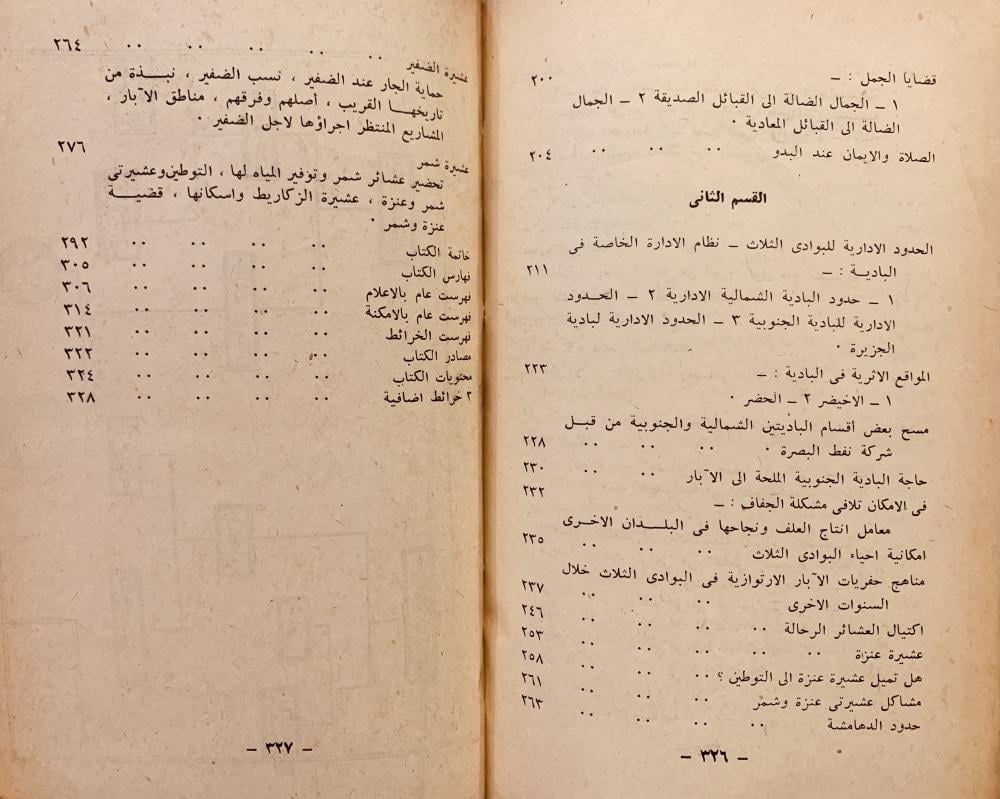 قضايا الجمل : — ٢٠٠
١ — الجمال الضالة الى القبائل الصديقة ٢ — الجمال
الضالة الى القبائل المعادية ٠
الصلاة والايمان عند البدو ٠٠ ٠٠ ٠٠ ٢٠٤
القسم الثانى
الحدود الادارية للبوادى الثلاث — نظام الادارة الخاصة فى
البادية : — ٢١١
١ — حدود البادية الشمالية الادارية ٢ — الحدود
الادارية للبادية الجنوبية ٣ — الحدود الادارية لبادية
الجزيرة ٠
المواقع الاثرية فى البادية : — ٢٢٣
١ — الاخيضر ٢ — الحضر ٠
مسح بعض أقسام الباديتين الشمالية والجنوبية من قبل
شركة نفط البصرة ٠ ٠٠ ٠٠ ٠٠ ٢٢٨
حاجة البادية الجنوبية الملحة الى الآبار ٠٠ ٠٠ ٢٣٠
فى الامكان تلافى مشكلة الجفاف : — ٢٣٢
معامل انتاج العلف ونجاحها فى البلدان الاخرى
امكانية احياء البوادى الثلاث ٠٠ ٠٠ ٠٠ ٢٣٥
مناهج حفريات الآبار الارتوازية فى البوادى الثلاث خلال
السنوات الاخرى ٠٠ ٠٠ ٠٠ ٢٣٧
اكتيال العشائر الرحالة ٠٠ ٠٠ ٠٠ ٠٠ ٢٤٦
عشيرة عنزة ٠٠ ٠٠ ٠٠ ٠٠ ٠٠ ٢٥٣
هل تميل عشيرة عنزة الى التوطين ؟ ٠٠ ٠٠ ٠٠ ٢٥٨
مشاكل عشيرتى عنزة وشمر ٠٠ ٠٠ ٠٠ ٢٦١
حدود الدهامشة ٠٠ ٠٠ ٠٠ ٠٠ ٢٦٣
— ٣٢٦ —
عشيرة الضفير ٠٠ ٠٠ ٠٠ ٠٠ ٠٠ ٢٦٤
حماية الجار عند الضفير ، نسب الضفير ، نبذة من
تاريخها القريب ، أصلهم وفرقهم ، مناطق الآبار ،
المشاريع المنتظر اجراؤها لاجل الضفير ٠
عشيرة شمر ٢٧٦
تحضير عشائر شمر وتوفير المياه لها ، التوطين وعشيرتى
شمر وعنزة ، عشيرة الزكاريط واسكانها ، قضية
عنزة وشمر ٠
خاتمة الكتاب ٠٠ ٠٠ ٠٠ ٠٠ ٢٩٢
نهارس الكتاب ٠٠ ٠٠ ٠٠ ٠٠ ٣٠٥
نهرست عام بالاعلام ٠٠ ٠٠ ٠٠ ٠٠ ٣٠٦
نهرست عام بالامكنة ٠٠ ٠٠ ٠٠ ٠٠ ٣١٤
نهرست الخرائط ٠٠ ٠٠ ٠٠ ٠٠ ٣٢١
مصادر الكتاب ٠٠ ٠٠ ٠٠ ٠٠ ٣٢٢
محتويات الكتاب ٠٠ ٠٠ ٠٠ ٠٠ ٣٢٤
٢ خرائط اضافية ٠٠ ٠٠ ٠٠ ٠٠ ٣٢٨
— ٣٢٧ —